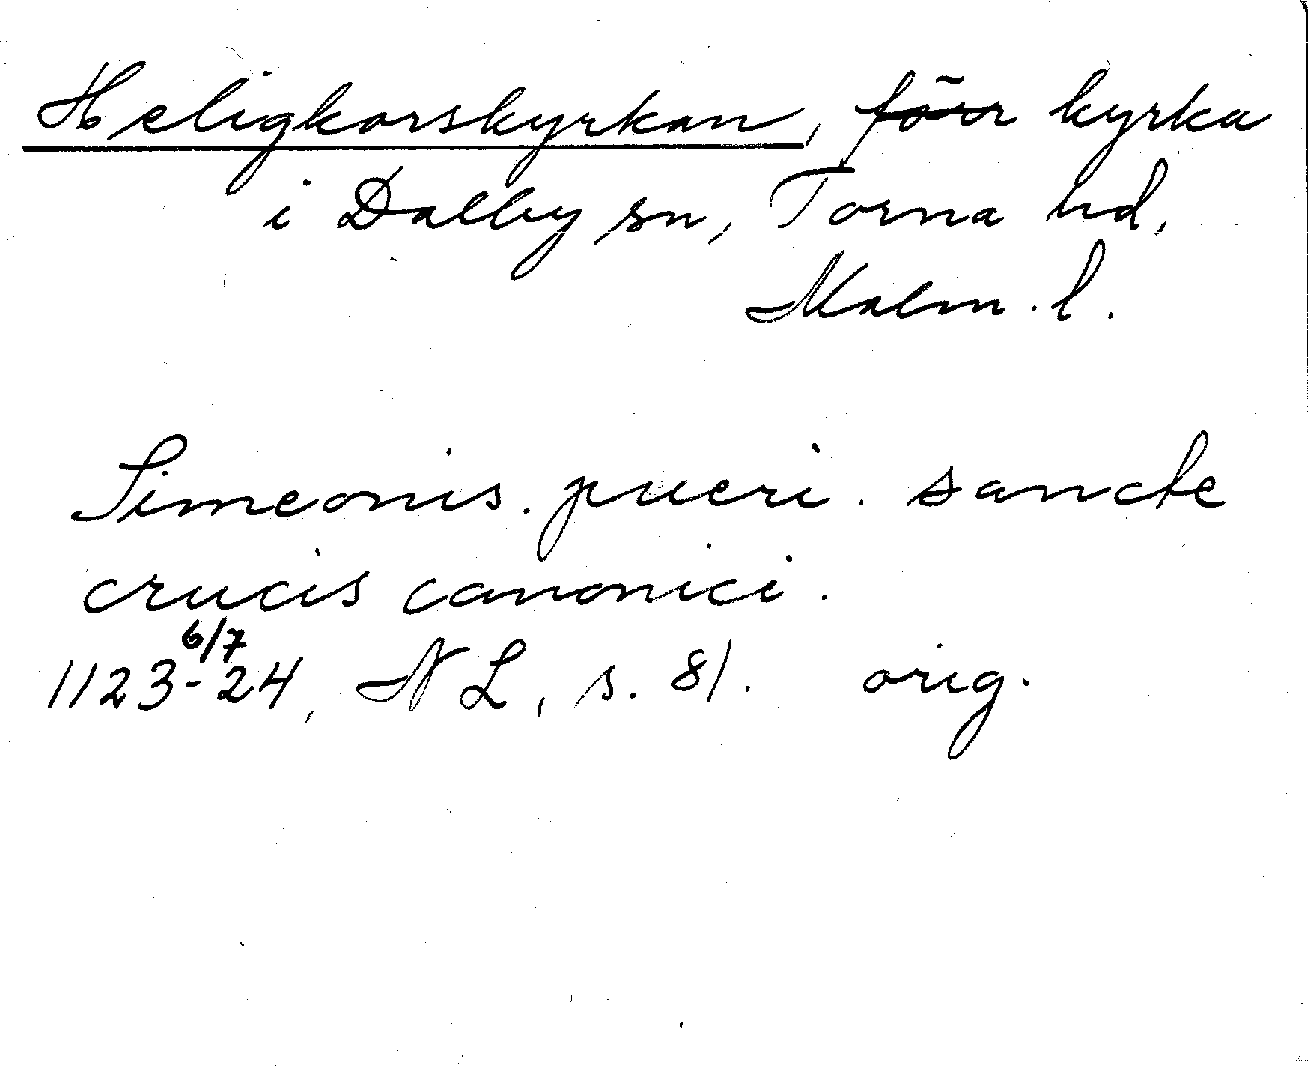 Heligkorskyrkan, förr kyrka
i Dalby sn, Torna hd,
Malm. l.
Simeonis. pueri. sancte
crucis canonici.
6/7
1123-24, NL, s. 81. orig.